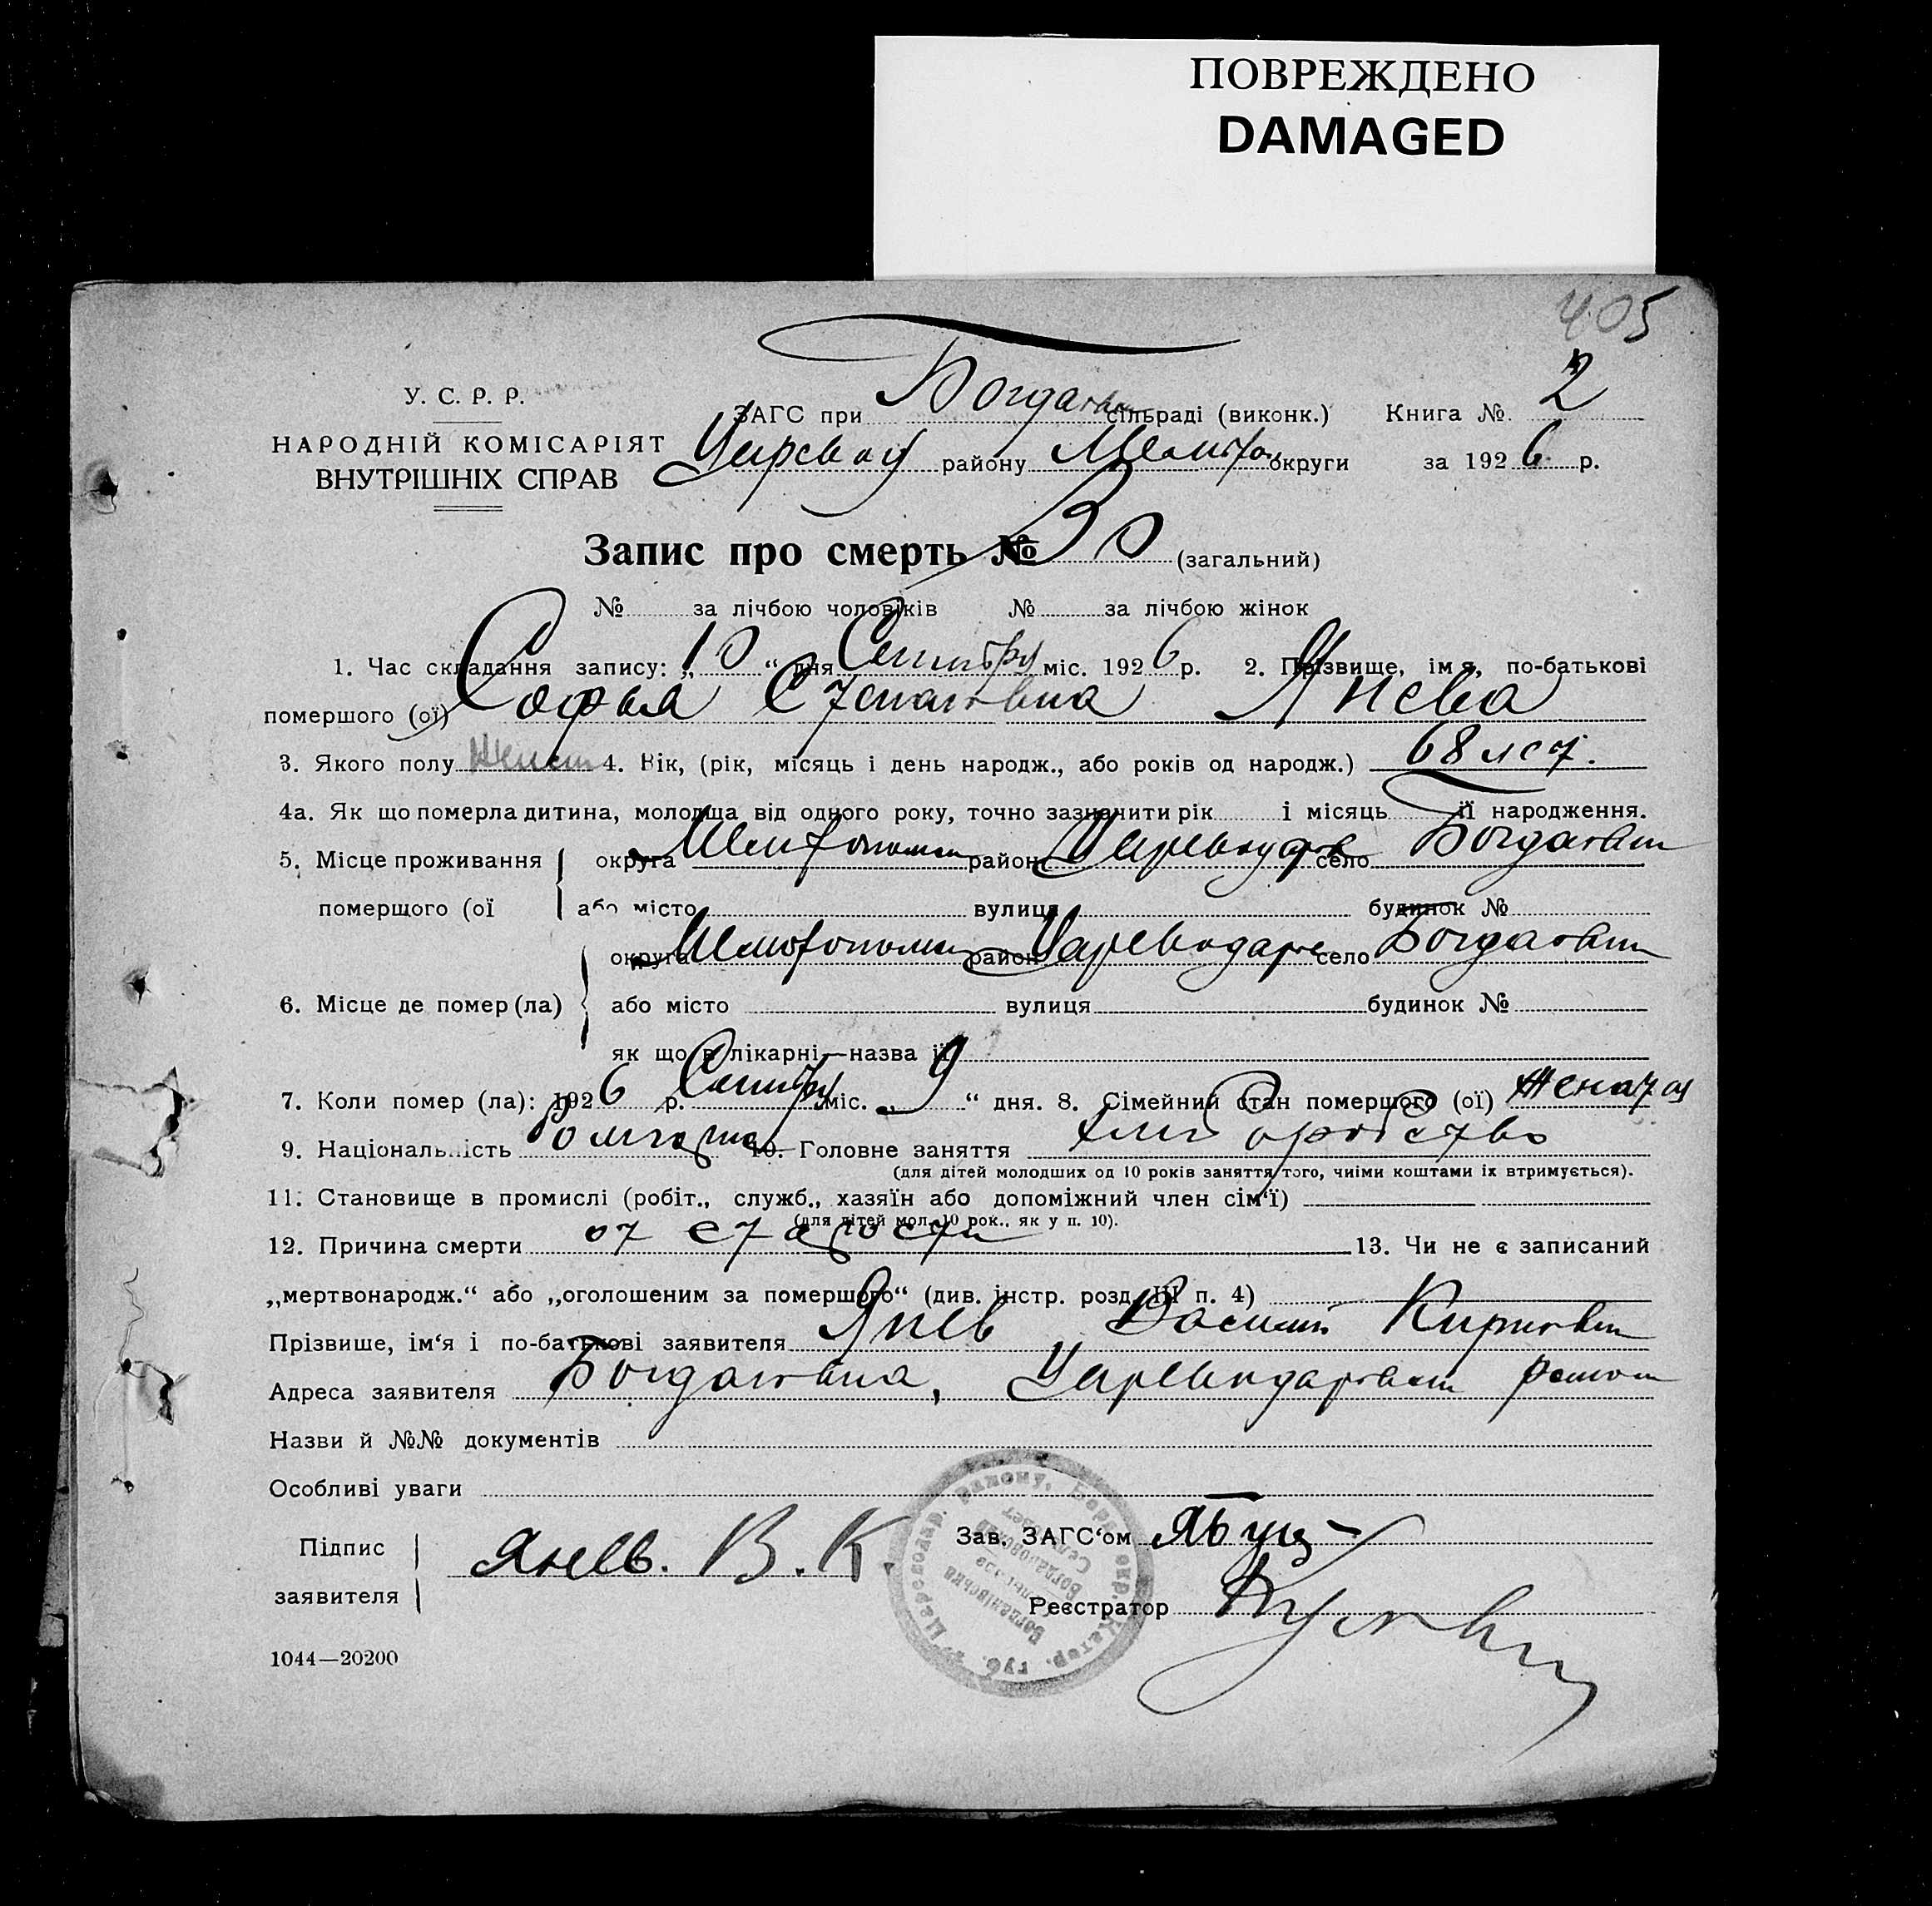 ПОВРЕЖДЕНО
DAMAGED
405
У. С. Р. Р.
НАРОДНІЙ КОМІСАРІЯТ
ВНУТРІШНІХ СПРАВ
ЗАГС при Богданов сільраді (виконк.) Книга № 2
Царевод району Мелитоп округи за 1926 р.
Запис про смерть № 30 (загальний)
№ за лічбою чоловіків № за лічбою жінок
1. Час складання запису: „10“ дня Сентября міс. 1926 р. 2. Прізвище, ім'я, по-батькові
помершого (ої) Софья Степановна Янева
3. Якого полу Женск 4. Вік, (рік, місяць і день народж., або років од народж.) 68 лет.
4а. Як що померла дитина, молодша від одного року, точно зазначити рік і місяць її народження.
5. Місце проживання округа Мелитопольск район Цареводаров село Богдановка
помершого (ої або місто вулиця будинок №
округа Мелитопольск район Цареводаров село Богдановка
6. Місце де помер (ла) або місто вулиця будинок №
як що в лікарні—назва її
7. Коли помер (ла): 1926 р. Сентября міс. „9“ дня. 8. Сімейний стан помершого (ої) Женатая
9. Національність Болгарка 10. Головне заняття хлеборобство
(для дітей молодших од 10 років заняття того, чиїми коштами їх втримується).
11. Становище в промислі (робіт., служб., хазяїн або допоміжний член сім'ї)
(для дітей мол. 10 рок., як у п. 10).
12. Причина смерти от старости 13. Чи не є записаний
„мертвонародж.“ або „оголошеним за помершого“ (див. інстр. розд. III п. 4)
Прізвище, ім'я і по-батькові заявителя Янев Василий Кирилович
Адреса заявителя Богдановка, Цареводаровский район
Назви й №№ документів
Особливі уваги
Підпис
заявителя Янев. В. К.
Зав. ЗАГС'ом
Реєстратор
1044—20200